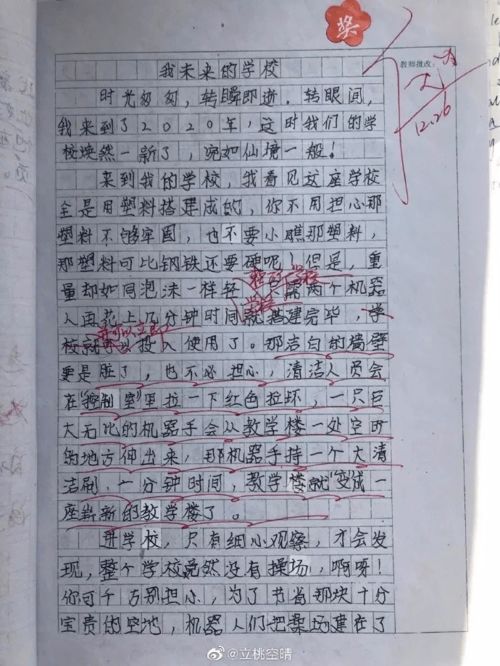 奖
教师批改：
我未来的学校
时光匆匆，转瞬即逝。转眼间，
我来到了2020年，这时我们的学
校焕然一新了，宛如仙境一般！
来到我的学校，我看见这座学校
全是用塑料搭建成的，你不用担心那
塑料不够牢固，也不要小瞧那塑料，
那塑料可比钢铁还要硬呢！但是，重
量却如同泡沫一样轻，只需两个机器
人再花上几分钟时间就搭建完毕，学
校就可以投入使用了。那洁白的墙壁
要是脏了，也不必担心，清洁人员会
在“控制室”里拉一下红色拉环，一只巨
大无比的机器手会从教学楼一处空旷
的地方伸出来，那机器手持一个大清
洁刷，一分钟时间，教学楼就“变”成一
座崭新的教学楼了。
进学校，只有细小观察，才会发
现，整个学校竟然没有操场，啊呀！
你可千万别担心，为了节省那块十分
宝贵的空地，机器人们把操场建在了
12.26
@立桃空晴